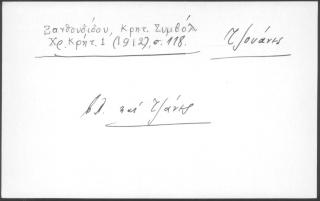 Ξανθουδίδου, Κρητ. Συμβόλ
Χρ. Κρήτ. 1 (1912), σ. 118.
Τζουάνες
βλ. καί Τζάνες